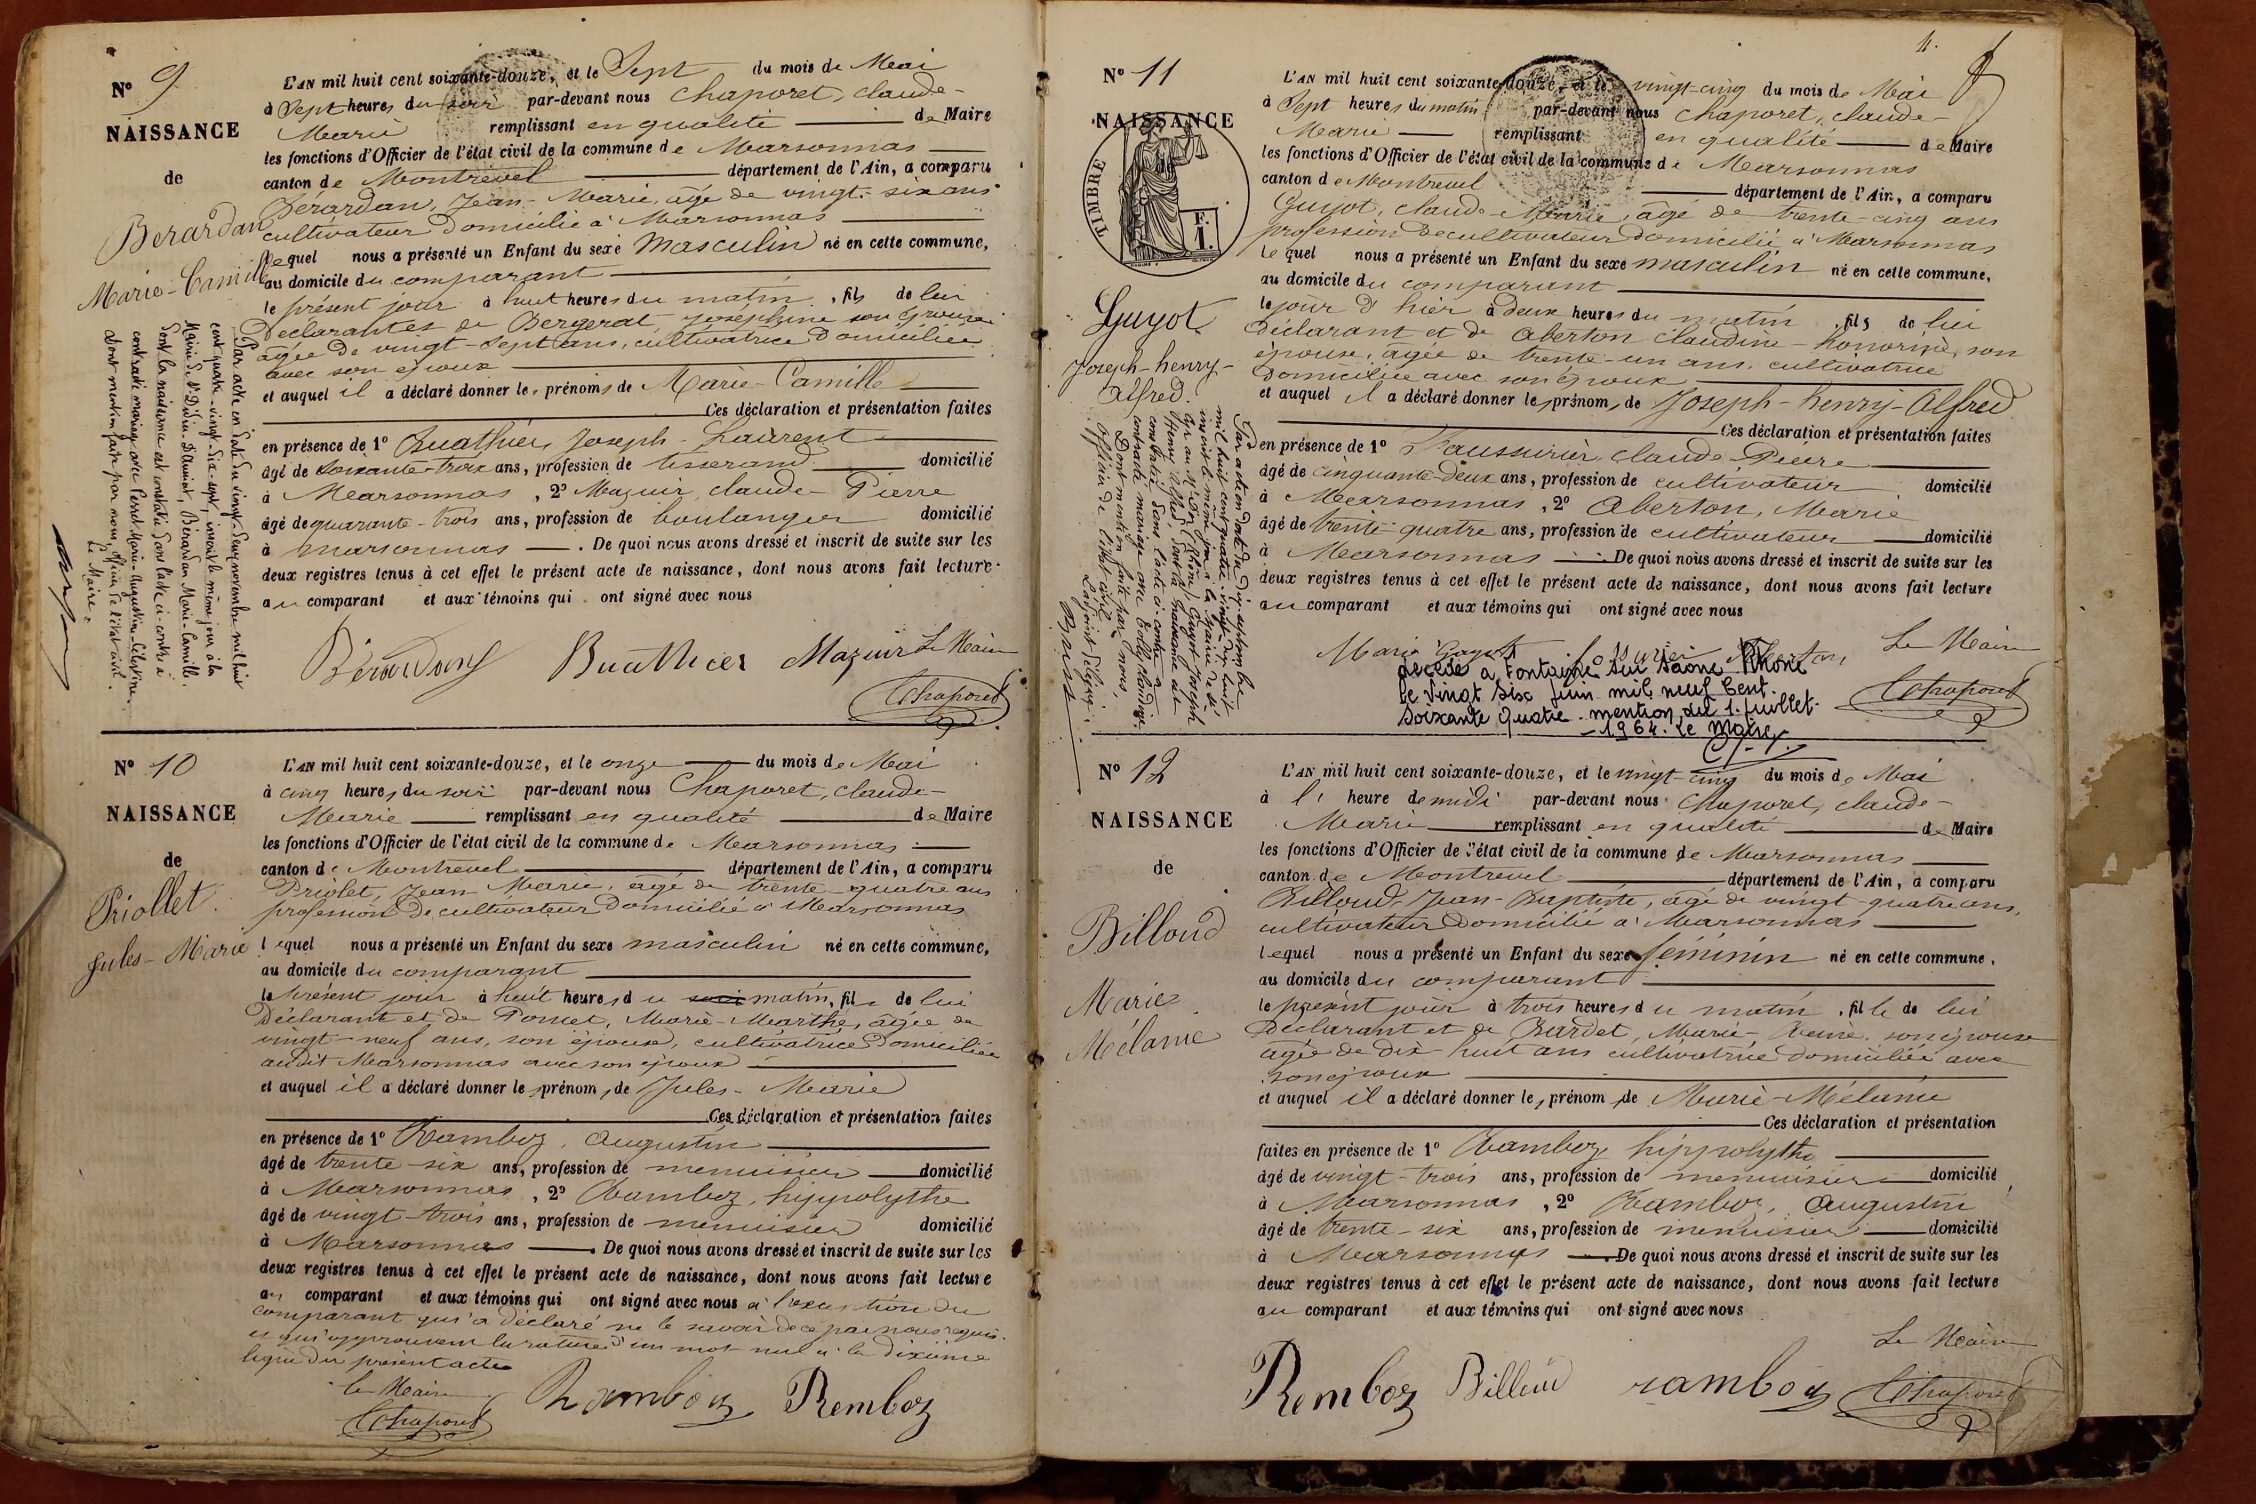 N° 9
NAISSANCE
de
Berardan
Marie-Camille
L'AN mil huit cent soixante-douze, et le Sept du mois de Mai
à Sept heures du soir par-devant nous Chaporet, claude-
Marie remplissant en qualité de Maire
les fonctions d'Officier de l'état civil de la commune de Marsonnas
canton de Montrevel département de l'Ain, a comparu
Bérardan, Jean-Marie, âgé de vingt-six ans
cultivateur domicilié à Marsonnas
lequel nous a présenté un Enfant du sexe masculin né en cette commune,
au domicile du comparant
le présent jour à huit heures du matin, fils de lui
déclarant et de Bergerat, Joséphine son épouse
âgée de vingt-sept ans, cultivatrice domiciliée
avec son époux
et auquel il a déclaré donner les prénoms de Marie-Camille
Ces déclaration et présentation faites
en présence de 1° Buathier, Joseph-Laurent
âgé de soixante-trois ans, profession de tisserand domicilié
à Marsonnas, 2° Mazuir, claude-Pierre
âgé de quarante-trois ans, profession de boulanger domicilié
à Marsonnas. De quoi nous avons dressé et inscrit de suite sur les
deux registres tenus à cet effet le présent acte de naissance, dont nous avons fait lecture
au comparant et aux témoins qui ont signé avec nous
Bérardan Buathier Mazuir Le Maire
Chaporet
Par acte en date du vingt-deux novembre mil huit
cent quatre-vingt-dix-sept, inscrit le même jour à la
Mairie de St Didier-d'Aussiat, Bérardan Marie-Camille
dont la naissance est constatée dans l'acte ci-contre a
contracté mariage avec Perret Marie-Augustine-Célestine.
dont mention faite par nous, officier de l'état civil.
Le Maire.
N° 10
NAISSANCE
de
Priollet
Jules-Marie
L'AN mil huit cent soixante-douze, et le onze du mois de Mai
à cinq heures du soir par-devant nous Chaporet, claude-
Marie remplissant en qualité de Maire
les fonctions d'Officier de l'état civil de la commune de Marsonnas
canton de Montrevel département de l'Ain, a comparu
Priolet, Jean-Marie, âgé de trente-quatre ans
profession de cultivateur domicilié à Marsonnas
lequel nous a présenté un Enfant du sexe masculin né en cette commune,
au domicile du comparant
le présent jour à huit heures du soir matin, fils de lui
déclarant et de Poncet, Marie-Marthe, âgée de
vingt-neuf ans, son épouse, cultivatrice domiciliée
audit Marsonnas avec son époux
et auquel il a déclaré donner les prénoms de Jules-Marie
Ces déclaration et présentation faites
en présence de 1° Ramboz, Augustin
âgé de trente-six ans, profession de menuisier domicilié
à Marsonnas, 2° Ramboz, hippolythe
âgé de vingt-trois ans, profession de menuisier domicilié
à Marsonnas. De quoi nous avons dressé et inscrit de suite sur les
deux registres tenus à cet effet le présent acte de naissance, dont nous avons fait lecture
au comparant et aux témoins qui ont signé avec nous à l'exception du
comparant qui a déclaré ne le savoir de ce par nous requis
et qui approuvent la rature d'un mot nul à la dixième
ligne du présent acte
Le Maire
Chaporet Ramboz Remboz
4.
N° 11
NAISSANCE
TIMBRE
F. 1.
Guyot
Joseph-henry-
Alfred.
L'AN mil huit cent soixante-douze, et le vingt-cinq du mois de Mai
à Sept heures du matin par-devant nous Chaporet, claude-
Marie remplissant en qualité de Maire
les fonctions d'Officier de l'état civil de la commune de Marsonnas
canton de Montrevel département de l'Ain, a comparu
Guyot, claude-Marie, âgé de trente-cinq ans
profession de cultivateur domicilié à Marsonnas
lequel nous a présenté un Enfant du sexe masculin né en cette commune,
au domicile du comparant
le jour d'hier à deux heures du matin, fils de lui
déclarant et de Aberton claudine-honorine, son
épouse, âgée de trente-un ans, cultivatrice
domiciliée avec son époux
et auquel il a déclaré donner les prénoms de Joseph-henry-Alfred
Ces déclaration et présentation faites
en présence de 1° Faussurier claude-Pierre
âgé de cinquante-deux ans, profession de cultivateur domicilié
à Marsonnas, 2° Aberton, Marie
âgé de trente-quatre ans, profession de cultivateur domicilié
à Marsonnas. De quoi nous avons dressé et inscrit de suite sur les
deux registres tenus à cet effet le présent acte de naissance, dont nous avons fait lecture
au comparant et aux témoins qui ont signé avec nous
Marie Guyot Aberton Le Maire
Chaporet
décédé à Fontaine sur Saône Rhône
le vingt six juin mil neuf cent
soixante quatre. mention du 1. juillet
1964. Le Maire
Par acte en date du dix septembre
mil huit cent quatre-vingt-dix-huit
inscrit le même jour à la Mairie de
Lyon (Rhône) Guyot Joseph
Henry Alfred, dont la naissance est
constatée dans l'acte ci-contre a
contracté mariage avec
Dont mention faite par nous,
officier de l'état civil
N° 12
NAISSANCE
de
Billoud
Marie
Mélanie
L'AN mil huit cent soixante-douze, et le vingt-cinq du mois de Mai
à l' heure de midi par-devant nous Chaporet, claude-
Marie remplissant en qualité de Maire
les fonctions d'Officier de l'état civil de la commune de Marsonnas
canton de Montrevel département de l'Ain, a comparu
Billoud, Jean-Baptiste, âgé de vingt-quatre ans,
cultivateur domicilié à Marsonnas
lequel nous a présenté un Enfant du sexe féminin né en cette commune,
au domicile du comparant
le présent jour à trois heures du matin, fille de lui
déclarant et de Bardet, Marie-Reine, son épouse
âgée de dix-huit ans cultivatrice domiciliée avec
son époux
et auquel il a déclaré donner les prénoms de Marie-Mélanie
Ces déclaration et présentation
faites en présence de 1° Ramboz hippolythe
âgé de vingt-trois ans, profession de menuisier domicilié
à Marsonnas, 2° Ramboz, Augustin
âgé de trente-six ans, profession de menuisier domicilié
à Marsonnas. De quoi nous avons dressé et inscrit de suite sur les
deux registres tenus à cet effet le présent acte de naissance, dont nous avons fait lecture
au comparant et aux témoins qui ont signé avec nous
Le Maire
Remboz Billoud ramboz Chaporet